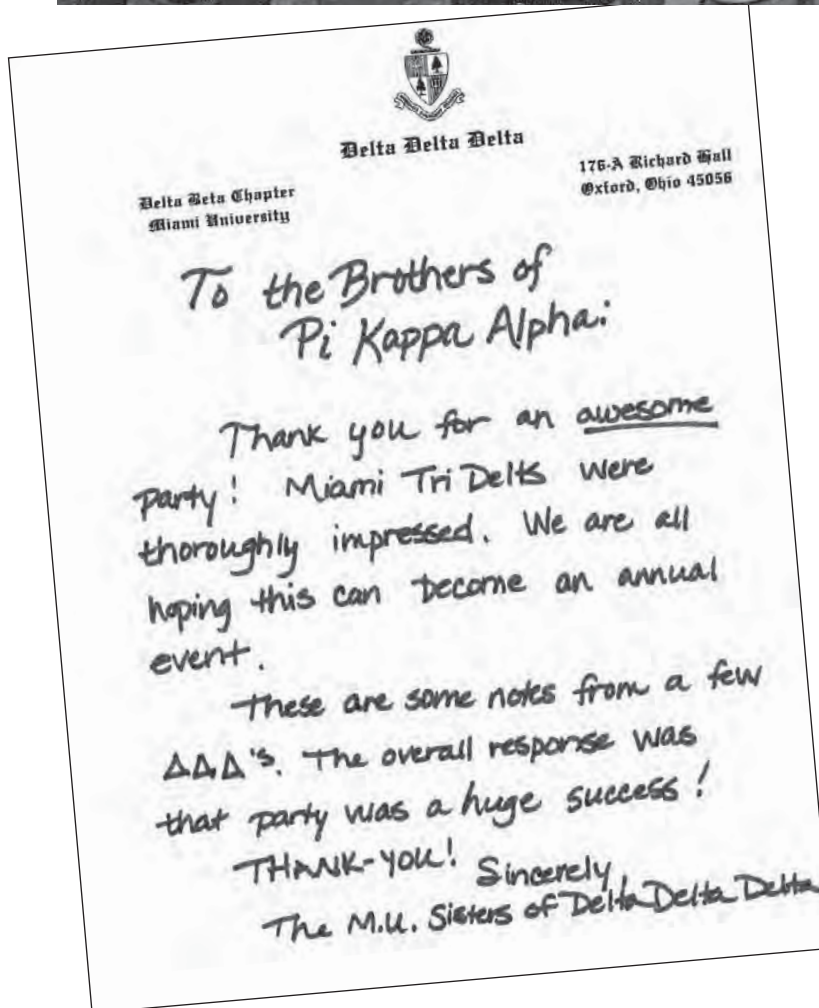 Delta Delta Delta
Delta Beta Chapter
Miami University
176-A Richard Hall
Oxford, Ohio 45056
To the Brothers of
Pi Kappa Alpha:
Thank you for an awesome
party! Miami Tri Delts were
thoroughly impressed. We are all
hoping this can become an annual
event.
These are some notes from a few
ΔΔΔ's. The overall response was
that party was a huge success!
THANK-YOU! Sincerely,
The M.U. Sisters of Delta Delta Delta